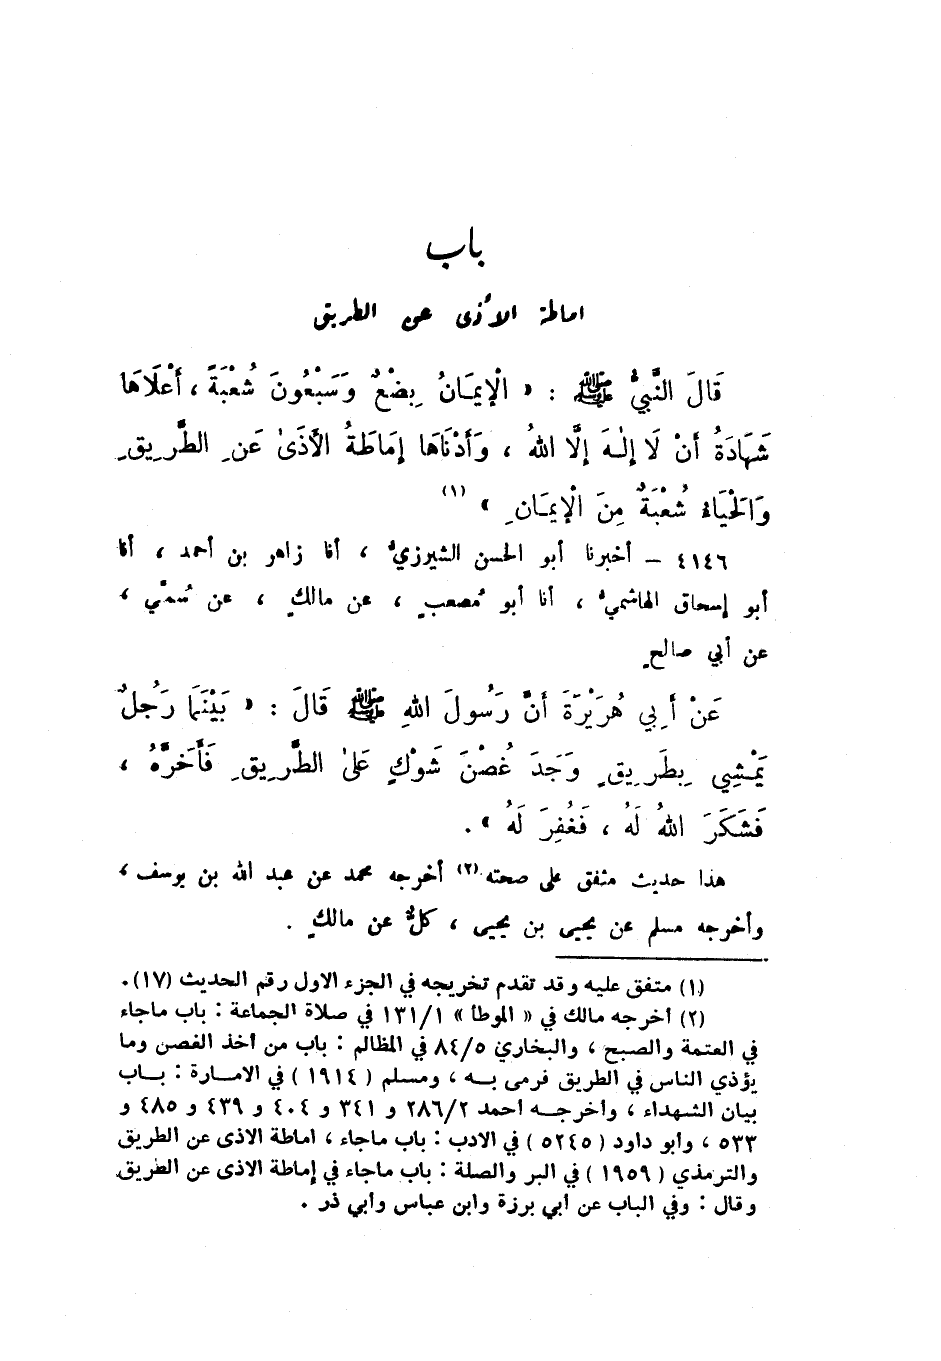 باب
اماطة الأذى عن الطريق
قَالَ النَّبيُّ ﷺ : « الْإِيمَانُ بِضْعٌ وَسَبْعُونَ شُعْبَةً ، أَعْلَاهَا
شَهَادَةُ أَنْ لَا إِلٰهَ إِلَّا اللهُ ، وَأَدْنَاهَا إمَاطَةُ الأَذَىٰ عَنِ الطَّرِيقِ
وَالحَيَاءُ شُعْبَةٌ مِنَ الْإِيمَانِ » (١)
٤١٤٦ – أخبرنا أبو الحسن الشيرزيُّ ، أنا زاهر بن أحمد ، أنا
أبو إسحاق الهاشميُّ ، أنا أبو مُصعبٍ ، عن مالكٍ ، عن سُمَيٍّ ،
عن أبي صالحٍ
عَنْ أَبِي هُرَيْرَةَ أَنَّ رَسُولَ اللهِ ﷺ قَالَ : « بَيْنَمَا رَجُلٌ
يَمْشِي بِطَرِيقٍ وَجَدَ غُصْنَ شَوْكٍ عَلىٰ الطَّرِيقِ فَأَخَّرَهُ ،
فَشَكَرَ اللهُ لَهُ ، فَغُفِرَ لَهُ » .
هذا حديث متفق على صحته (٢) أخرجه محمد عن عبد الله بن يوسف ،
وأخرجه مسلم عن يحيى بن يحيى ، كلٌّ عن مالكٍ .
(١) متفق عليه وقد تقدم تخريجه في الجزء الاول رقم الحديث (١٧) .
(٢) أخرجه مالك في « الموطأ » ١٣١/١ في صلاة الجماعة : باب ماجاء
في العتمة والصبح ، والبخاري ٨٤/٥ في المظالم : باب من أخذ الغصن وما
يؤذي الناس في الطريق فرمى به ، ومسلم ( ١٩١٤ ) في الامارة : باب
بيان الشهداء ، وأخرجه أحمد ٢٨٦/٢ و ٣٤١ و ٤٠٤ و ٤٣٩ و ٤٨٥ و
٥٣٣ ، وأبو داود ( ٥٢٤٥ ) في الادب : باب ماجاء ، اماطة الاذى عن الطريق
والترمذي ( ١٩٥٩ ) في البر والصلة : باب ماجاء في إماطة الاذى عن الطريق
وقال : وفي الباب عن أبي برزة وابن عباس وأبي ذر .